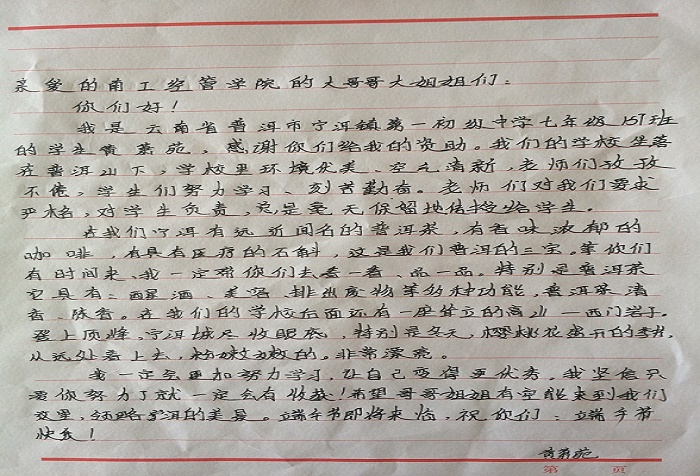 亲爱的南工经管学院的大哥哥大姐姐们：
你们好！
我是云南省普洱市宁洱镇第一初级中学七年级151班
的学生黄蓊苑，感谢你们给我的资助。我们的学校坐落
在普洱山下，学校里环境优美、空气清新，老师们孜孜
不倦，学生们努力学习、刻苦勤奋。老师们对我们要求
严格，对学生负责，总是毫无保留地传授给学生。
在我们宁洱有远近闻名的普洱茶，有香味浓郁的
咖啡，有具有医疗的石斛，这是我们普洱的三宝。等你们
有时间来，我一定带你们去看一看、品一品。特别是普洱茶
它具有：醒酒、美容、排出废物等多种功能，普洱茶清
香、陈香。在我们的学校后面还有一座耸立的高山—西门岩子。
登上顶峰，宁洱城尽收眼底，特别是冬天，樱桃花盛开的季节，
从远处看上去，粉嫩粉嫩的。非常漂亮。
我一定会更加努力学习，让自己变得更优秀。我坚信只
要你努力了就一定会有收获！希望哥哥姐姐有空能来到我们
这里，领略宁洱的美景。端午节即将来临，祝你们：端午节
快乐！
苑
第 页